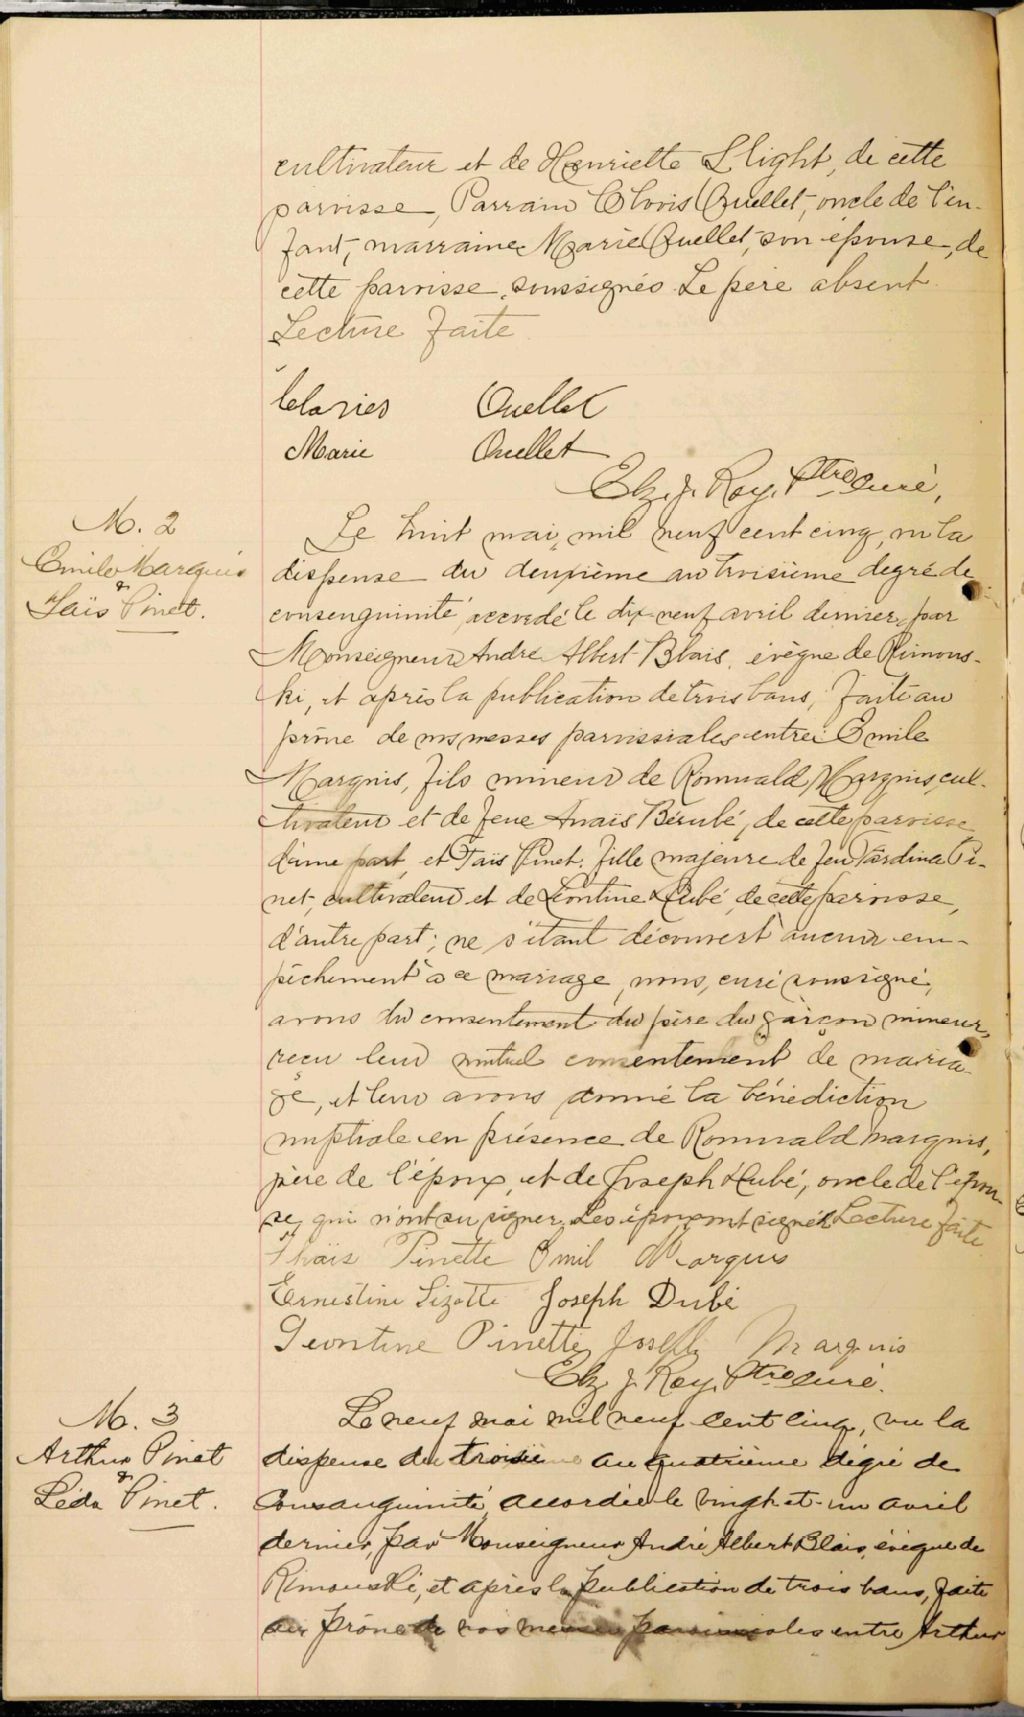 cultivateur et de Henriette Slight, de cette
paroisse, Parrain Clovis Ouellet, oncle de l'en-
fant, marraine Marie Ouellet, son épouse, de
cette paroisse, soussignés. Le père absent.
Lecture faite
Ouellet
Marie Ouellet
Elz. J. Roy, Ptre Curé,
M. 2
Emile Marquis
&
Taïs Pinet.
Le huit mai, mil neuf cent cinq, vu la
dispense du deuxième au troisième degré de
consenguinité, accordé le dix-neuf avril dernier, par
Monseigneur André Albert Blais, évèque de Rimous-
ki, et après la publication de trois bans, faite au
prône de nos messes paroissiales entre Emile
Marquis, fils mineur de Romuald Marquis, cul-
tivateur et de feue Anaïs Bérubé, de cette paroisse
d'une part, et Taïs Pinet, fille majeure de feu Pi-
net, cultivateur et de Léontine Dubé, de cette paroisse,
d'autre part; ne s'étant découvert aucun em-
pêchement à ce mariage, nous, curé soussigné,
avons du consentement du père du garçon mineur,
reçu leur mutuel consentement de maria-
ge, et leur avons donné la bénédiction
nuptiale en présence de Romuald Marquis,
père de l'époux, et de Joseph Dubé, oncle de l'épou-
se, qui n'ont su signer. Les époux ont signés Lecture faite
Thaïs Pinette Emil Marquis
Ernestine Lizotte Joseph Dubé
Leontine Pinette Joseph Marquis
Elz. J. Roy, Ptre Curé.
M. 3
Arthur Pinet
&
Léda Pinet.
Le neuf mai mil neuf cent cinq, vu la
dispense du troisième au quatrième dégré de
Consanguinité, accordée le vingt-et-un avril
dernier, par Monseigneur André Albert Blais, évèque de
Rimouski, et après la publication de trois bans, faite
au prône de nos messes paroissiales entre Arthur